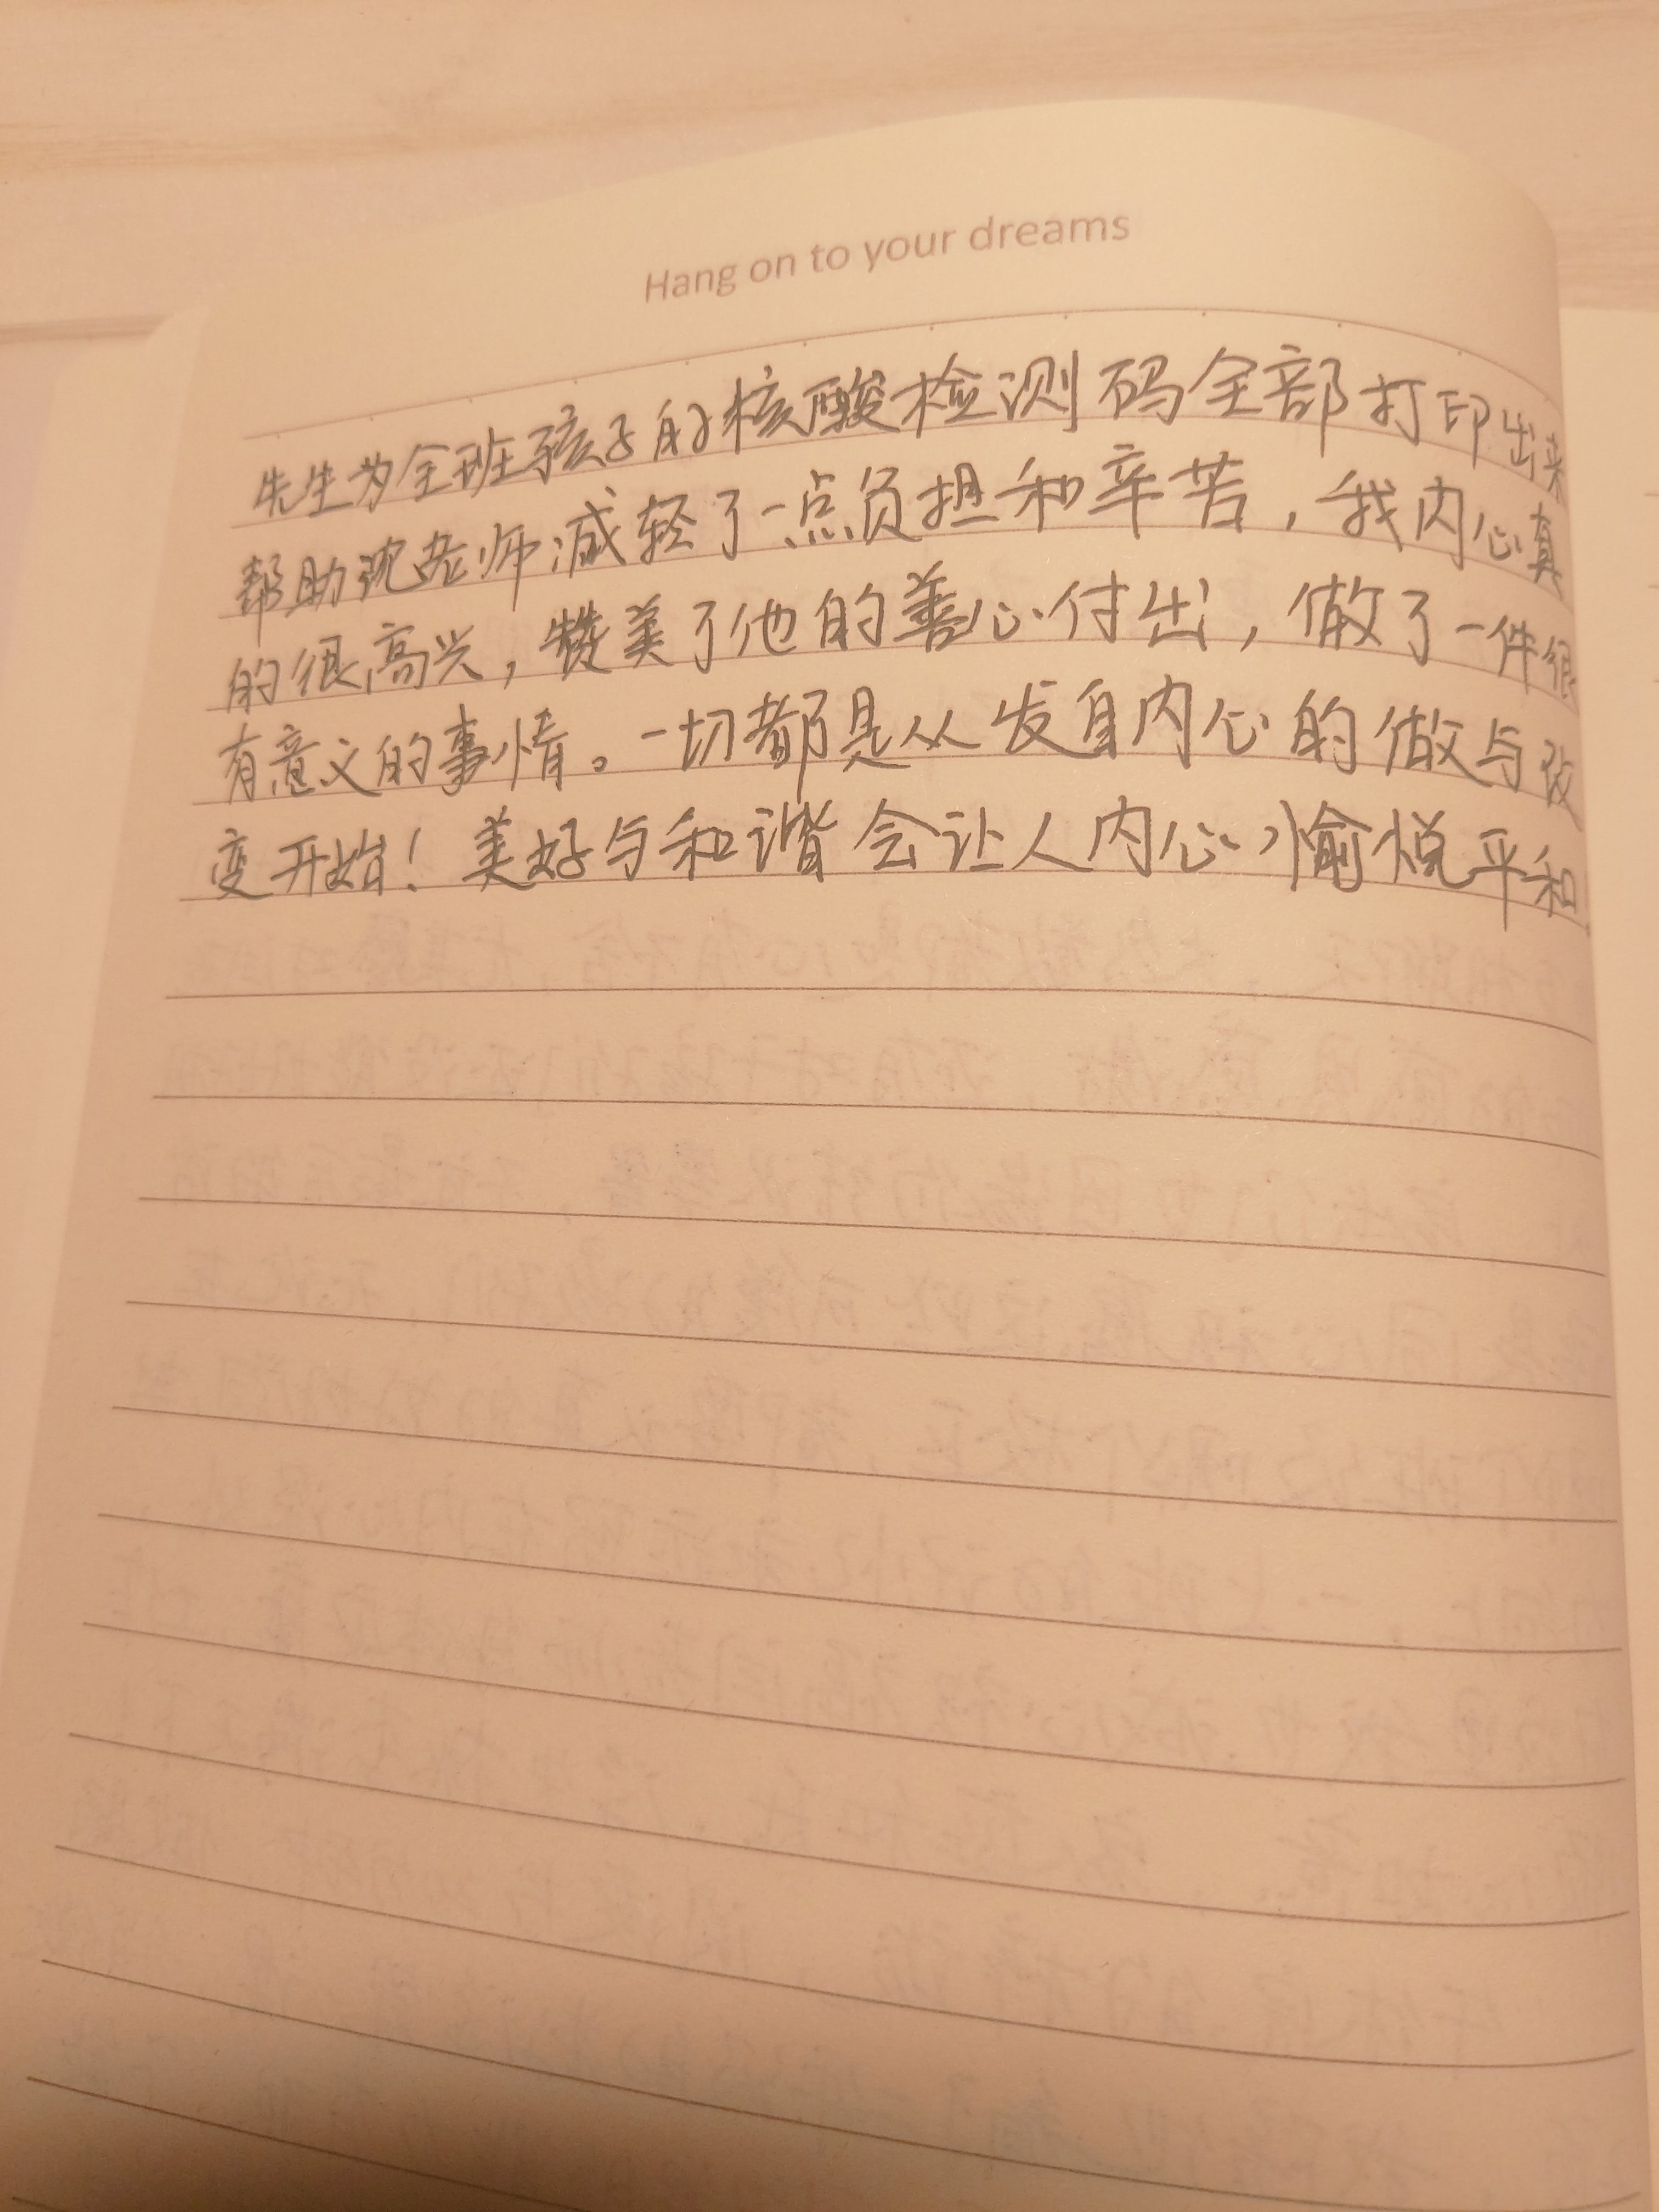 Hang on to your dreams
先生为全班孩子的核酸检测码全部打印出来
帮助沈老师减轻了一点负担和辛苦，我内心真
的很高兴，赞美了他的善心付出，做了一件很
有意义的事情。一切都是从发自内心的做与改
变开始！美好与和谐会让人内心愉悦平和